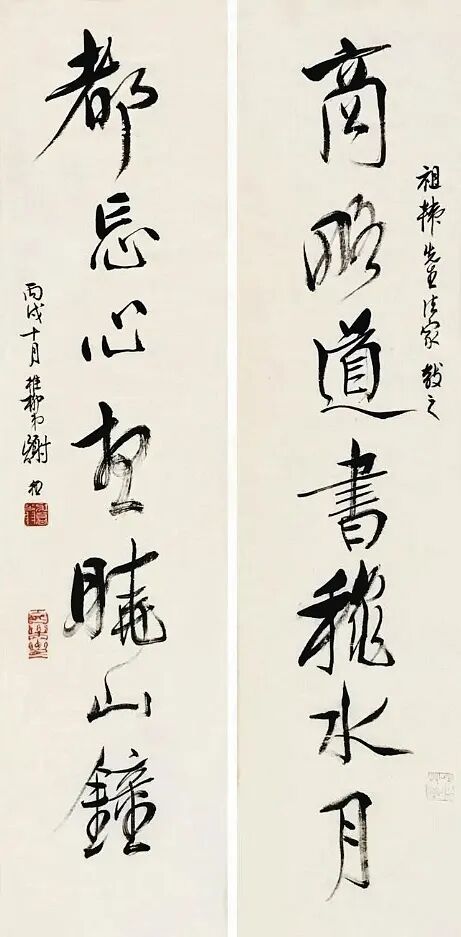 祖韓先生法家教之
商略道書穐水月
都忘心想曉山鐘
丙戌十月稚柳弟謝稚